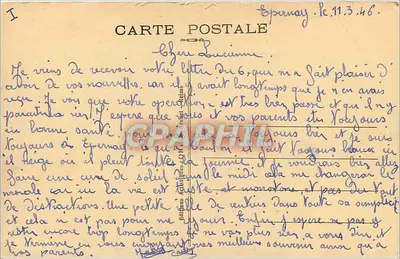 I
Epernay le 11.3.46
CARTE POSTALE
Chère Lucienne.
Je viens de recevoir votre lettre du 6, qui m'a fait plaisir d'
avoir de vos nouvelles, car il y avait longtemps que je n'en avais
reçu. Je vois que votre opération, s'est très bien passée et qu'il n'y
paraîtra rien. J'espère que vous et vos parents êtes toujours
en bonne santé, pour moi toujours bien et je suis
toujours à Epernay où il fait toujours beau ici
il neige où il pleut toute la journée, et je voudrais bien aller
faire une cure de soleil dans le midi cela me changerait le
morale car ici la vie est triste et monotone, et pas du tout
de distractions. Une petite ville de rentiers dans toute sa simplicité
et cela n'est pas pour me réjouir. Enfin j'espère ne pas y
rester encore trop longtemps je ne vois plus rien à vous dire, et
je termine en vous envoyant mes meilleurs souvenirs ainsi qu'à
vos parents.
CPARAMA